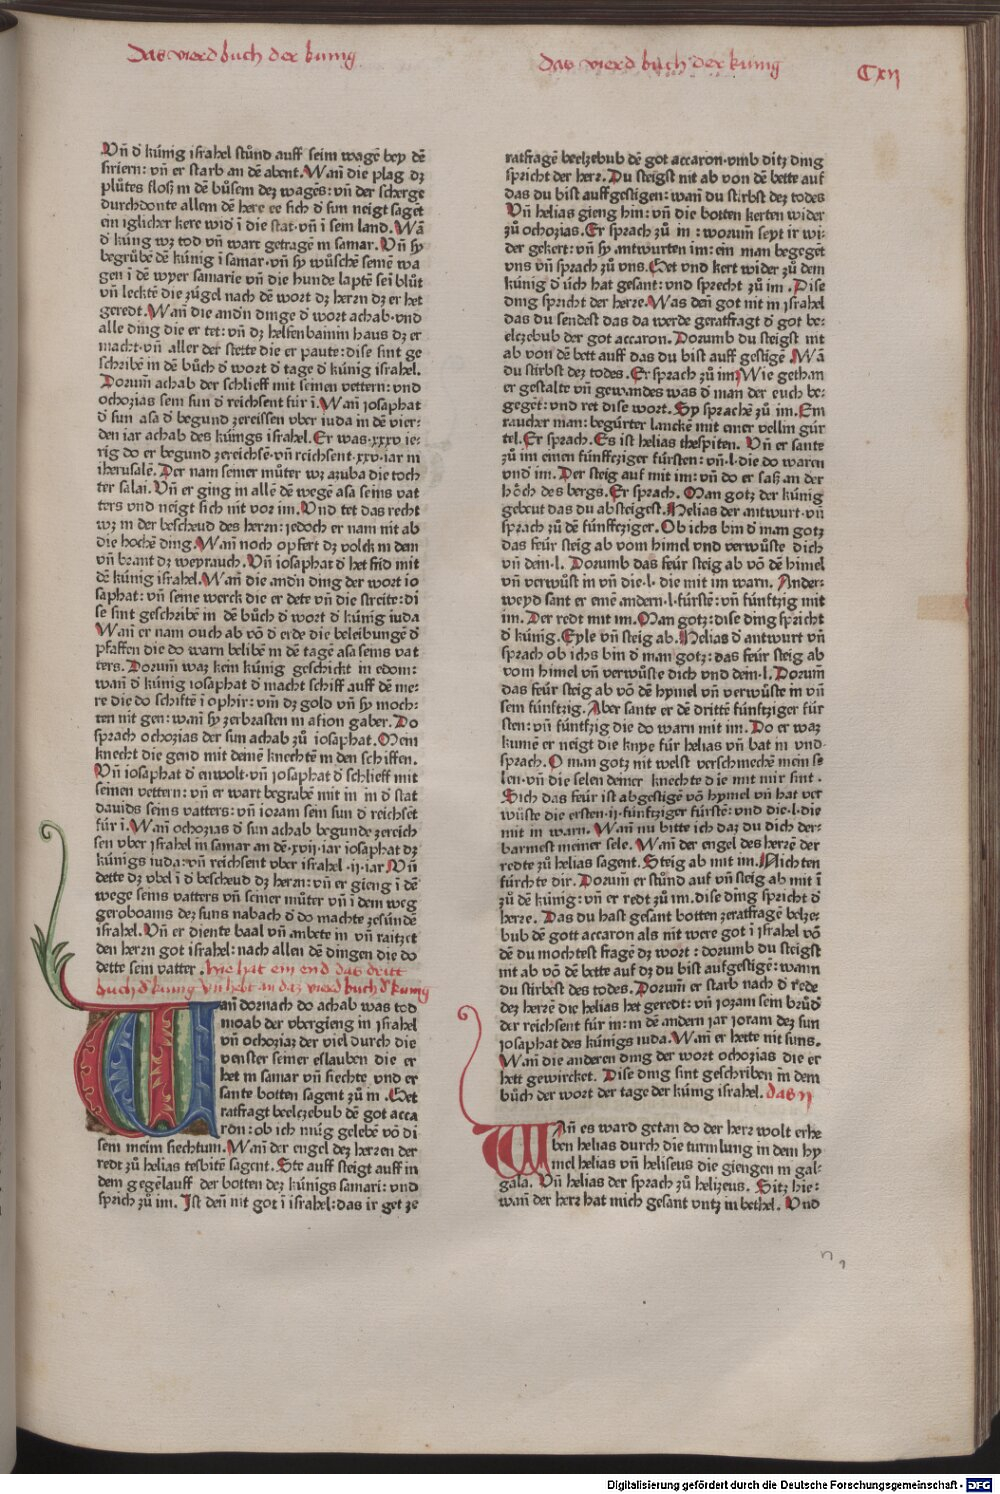 Das vierd buch der kunig
das vierd buch der kunig
Cxij
Vñ d́ kúnig israhel stůnd auff seim wagē bey dē
siriern: vñ er starb an dē abent. Wañ die plag dz
plůtes floß in dē bůsem dez wagēs: vñ der scherge
durchdonte allem dē here ee sich d́ sun neigt saget
ein iglicher kere wid́ ī die stat·vñ ī sein land. Wā
d́ kúng wz tod vñ wart getragē in samar. Vñ sy
begrůbē dē kúnig ī samar·vñ sy wůschē seinē wa
gen ī dē wyer samarie vñ die hunde laptē seī blůt
vñ lecktē die zúgel nach dē wort dz herzn dz er het
geredt. Wañ die and́n dinge d́ wort achab·vnd
alle ding die er tet: vñ dz helfenbainin haus dz er
macht·vñ aller der stette die er paute: dise sint ge
schribē in dē bůch d́ wort d́ tage d́ kúnig israhel.
Dorum̄ achab der schlieff mit seinen vettern: vnd
ochozias sein sun d́ reichsent fúr ī. Wañ iosaphat
d́ sun asa d́ begund zereissen vber iuda in dē vier-
den iar achab des kúnigs israhel. Er was·xxxv ie-
rig do er begund zereichsē·vñ reichsent·xxv·iar in
iherusalē. Der nam seiner můter wz azuba die toch
ter salai. Vñ er ging in allē dē wegē asa seins vat
ters vnd neigt sich nit vor im. Vnd tet das recht
wz in der bescheud des herrn: iedoch er nam nit ab
die hochē ding. Wañ noch opfert dz volck in dem
vñ brant dz weyrauch. Vñ iosaphat d́ het frid mit
dē kúnig israhel. Wañ die and́n ding der wort io
saphat: vñ seine werck die er dete vñ die streite: di
se sint geschribē in dē bůch d́ wort d́ kúnig iuda
Wañ er nam ouch ab vō d́ erde die beleibungē d́
pfaffen die do warn belibē in dē tagē asa seins vat
ters. Dorum̄ waz kein kúnig geschickt in edom:
wañ d́ kúnig iosaphat d́ macht schiff auff dē me-
re die do schiftē ī ophir: vm̄ dz gold vñ sy moch-
ten nit gen: wañ sy zerbrasten in asion gaber. Do
sprach ochozias der sun achab zů iosaphat. Mein
knecht die gend mit deinē knechtē in den schiffen.
Vñ iosaphat d́ enwolt·vñ iosaphat d́ schlieff mit
seinen vettern: vñ er wart begrabē mit in in d́ stat
dauids seins vatters: vñ ioram sein sun d́ reichsēt
fúr ī. Wañ ochozias d́ sun achab begunde zereich
sen vber israhel in samar an dē·xvij·iar iosaphat dz
kúnigs iuda: vñ reichsent vber israhel·ij·iar Vñ
dette dz vbel ī d́ bescheud dz herrn: vñ er gieng ī dē
wege seins vatters vñ seiner můter vñ ī dem weg
geroboams dez suns nabach d́ do machte zesúndē
israhel. Vñ er diente baal vñ anbete in vñ raitzet
den herrn got israhel: nach allen dē dingen die do
dette sein vatter. hie hat ein end das dritt
buch d́ kunig vñ hebt an daz vierd buch d́ kunig
Wañ dornach do achab was tod
moab der vbergieng in israhel
vñ ochoziaz der viel durch die
venster seiner eslauben die er
het in samar vñ siechte vnd er
sante botten sagent zů in. Get
ratfragt beelczebub dē got acca
ron: ob ich múg gelebē vō di
sem meim siechtum. Wañ der engel dez herren der
redt zů helias tesbitē sagent. Ste auff steigt auff in
dem gegēlauff der botten dez kúnigs samari: vnd
sprich zů im. Jst deñ nit got ī israhel: das ir get ze
ratfragē beelzebub dē got accaron·vmb ditz ding
spricht der herr. Du steigst nit ab von dē bette auf
das du bist auffgestigen: wañ du stirbst dez todes
Vñ helias gieng hin: vñ die botten kerten wider
zů ochozias. Er sprach zů in: worum̄ seyt ir wi-
der gekert: vñ sy antwurten im: ein man begegēt
vns vñ sprach zů vns. Get vnd kert wider zů dem
kúnig d́ úch hat gesant: vnd sprecht zů im. Dise
ding spricht der herre. Was deñ got nit in jsrahel
das du sendest das da werde geratfragt d́ got be-
elczebub der got accaron. Dorumb du steigst nit
ab von dē bett auff das du bist auff gestigē. Wā
du stirbst dez todes. Er sprach zů im Wie gethan
er gestalte vñ gewandes was d́ man der euch be-
gegēt: vnd ret dise wort. Sy sprachē zů im. Ein
raucher man: begúrter lanckē mit einer vellin gúr
tel. Er sprach. Es ist helias thespiten. Vñ er sante
zů im einen fúnfftziger fúrsten: vñ·l·die do waren
vnd́ im. Der steig auf mit im: vñ do er saß an der
hǒch des bergs. Er sprach. Man gotz der kúnig
gebeut das du absteigest. Helias der antwurt·vñ
sprach zů dē fúnfftziger. Ob ichs bin d́ man gotz
das feúr steig ab vom himel vnd verwůste dich
vñ dein·l. Dorumb das feúr steig ab vō dē himel
vñ verwůst in vñ die·l·die mit im warn. Ander-
weyd sant er einē andern·l·fúrstē: vñ fúnftzig mit
im. Der redt mit im. Man gotz: dise ding spricht
d́ kúnig. Eyle vñ steig ab. Helias d́ antwurt vñ
sprach ob ichs bin d́ man gotz: das feúr steig ab
vom himel vñ verwůste dich vnd dein·l. Dorum̄
das feúr steig ab vō dē hymel vñ verwůste in vñ
sein fúnftzig. Aber sante er dē drittē fúnftziger fúr
sten: vñ fúnftzig die do warn mit im. Do er waz
kumē er neigt die knye fúr helias vñ bat in vnd
sprach. O man gotz nit welst verschmechē mein se
len·vñ die selen deiner knechte die mit mir sint.
Sich das feúr ist abgestigē vō hymel vñ hat ver
wůste die ersten·ij·fúnftziger fúrstē: vnd die·l·die
mit in warn. Wañ nu bitte ich daz du dich der-
barmest meiner sele. Wañ der engel des herzē der
redte zů helias sagent. Steig ab mit im. Nichten
fúrchte dir. Dorum̄ er stůnd auf vñ steig ab mit ī
zů dē kúnig: vñ er redt zů im. dise ding spricht d́
herre. Das du hast gesant botten zeratfragē belzee
bub dē gott accaron als nit were got ī israhel vō
dē du mochtest fragē dz wort: dorumb du steigst
nit ab vō dē bette auf dz du bist aufgestigē: wann
du stirbēst des todes. Dorum̄ er starb nach d́ rede
dez herrē die helias het geredt: vñ joram sein brůd́
der reichsent fúr in: in dē andern jar joram dez sun
josaphat des kúnigs iuda. Wañ er hette nit suns.
Wañ die anderen ding der wort ochozias die er
hett gewircket. Dise ding sint geschriben in dem
bůch der wort der tage der kúnig israhel. das ij
Wañ es ward getan do der herr wolt erhe
ben helias durch die turmlung in dem hy
mel helias vñ heliseus die giengen in gal-
gala. Vñ helias der sprach zů helizeus. Sitz hie:
wañ der herr hat mich gesant vntz in bethel. Vnd
Digitalisierung gefördert durch die Deutsche Forschungsgemeinschaft - DFG